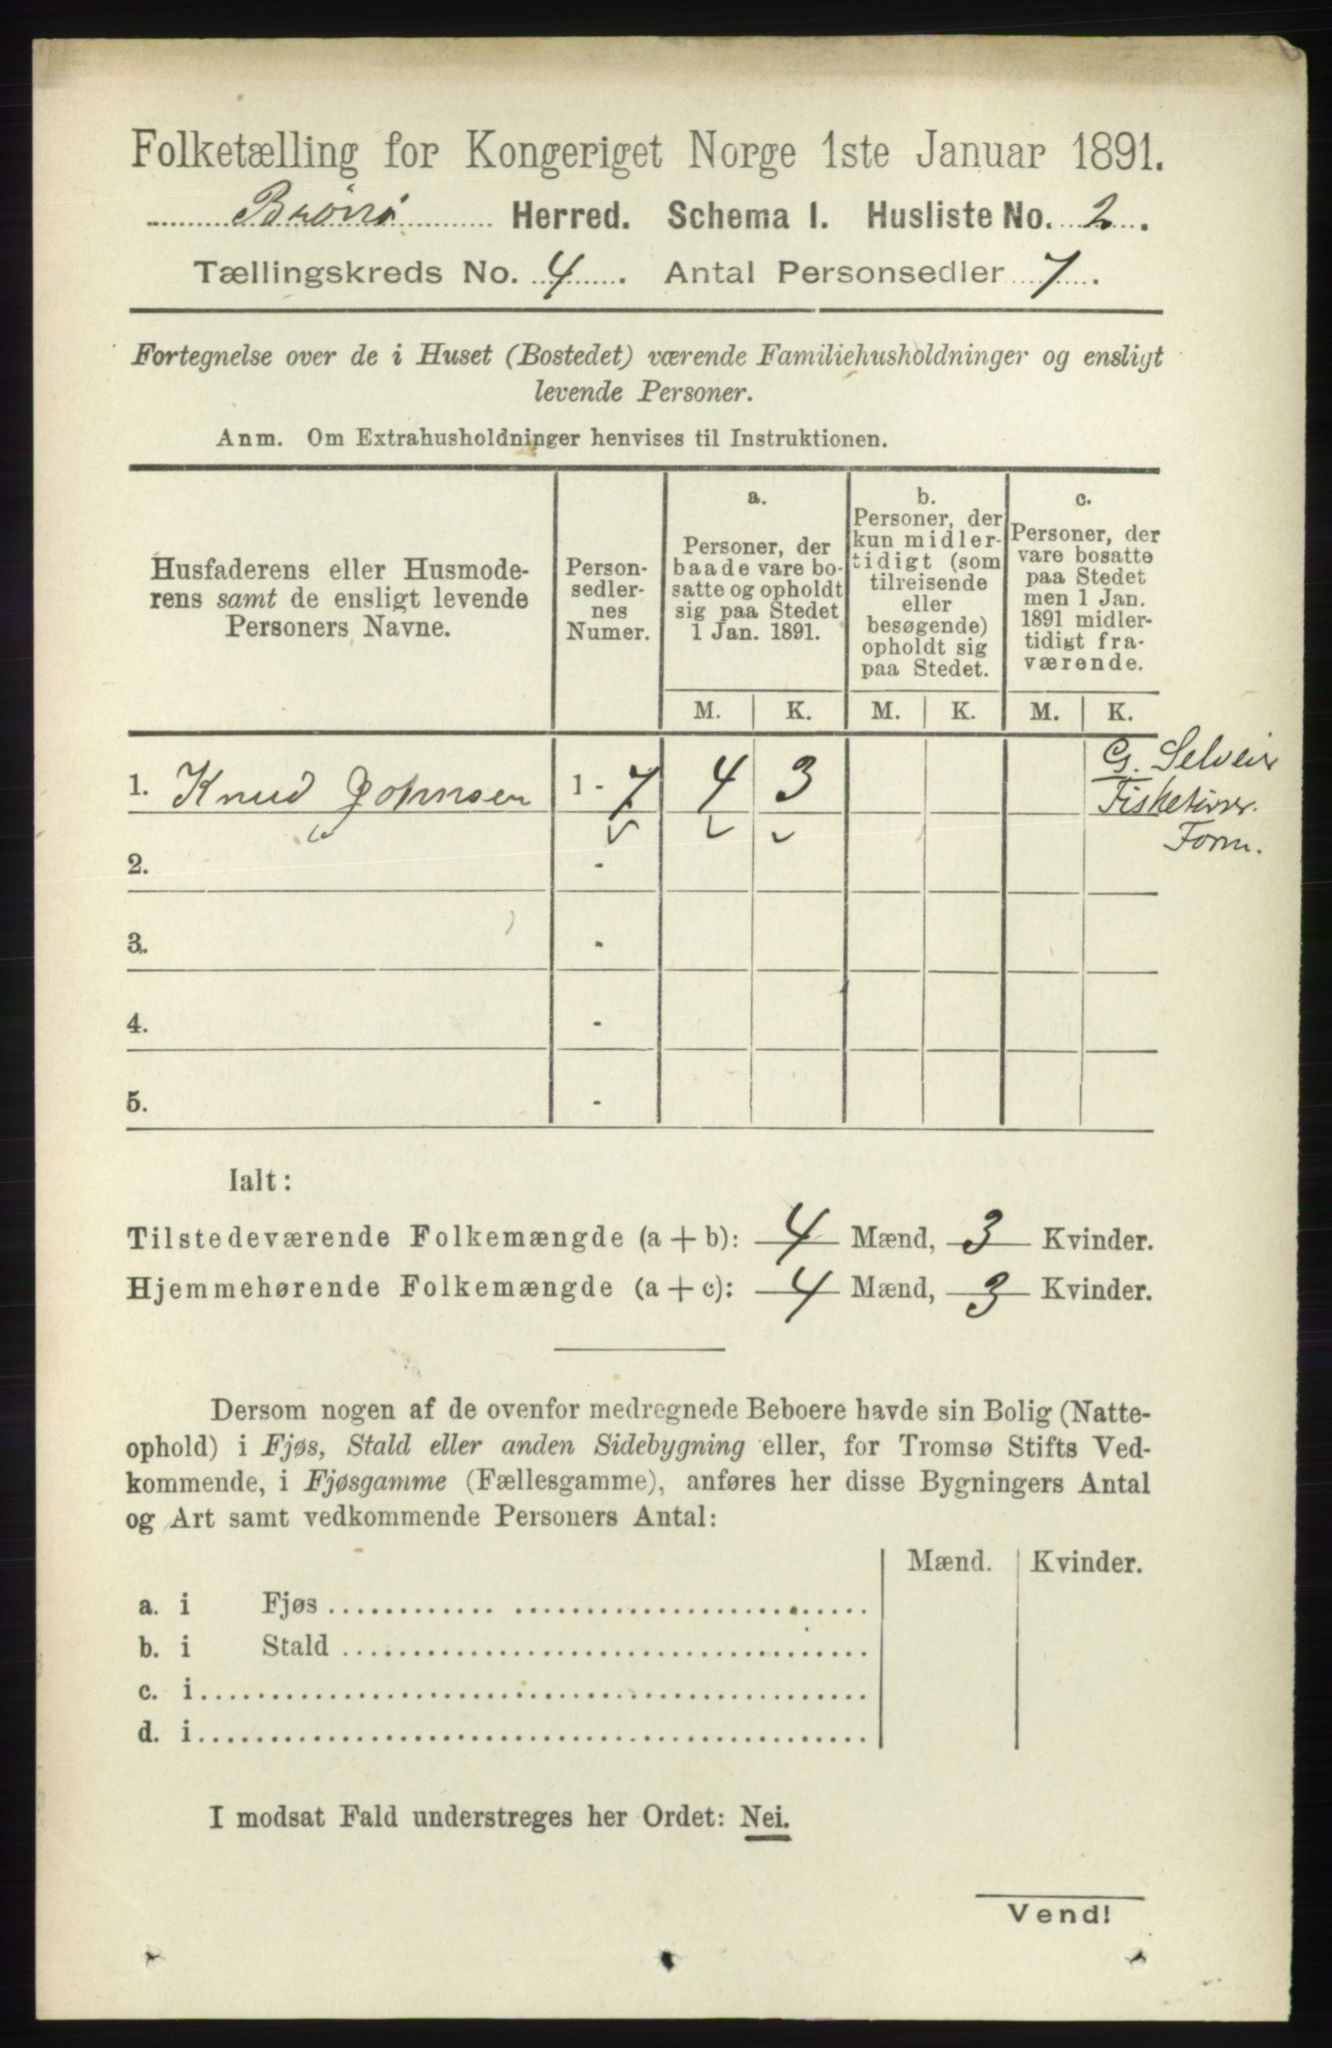 Folketælling for Kongeriget Norge 1ste Januar 1891.
Brønø Herred. Schema I. Husliste No. 2.
Tællingskreds No. 4. Antal Personsedler 7.
Fortegnelse over de i Huset (Bostedet) værende Familiehusholdninger og ensligt
levende Personer.
Anm. Om Extrahusholdninger henvises til Instruktionen.
Husfaderens eller Husmode-
rens samt de ensligt levende
Personers Navne.
Person-
sedler-
nes
Numer.
a.
Personer, der
baade vare bo-
satte og opholdt
sig paa Stedet
1 Jan. 1891.
b.
Personer, der
kun midler-
tidigt (som
tilreisende
eller
besøgende)
opholdt sig
paa Stedet.
c.
Personer, der
vare bosatte
paa Stedet
men 1 Jan.
1891 midler-
tidigt fra-
værende.
M. K. M. K. M. K.
1. Knud Johnsen 1 - 7 4 3
G. Selveier
Fisketirer.
Form.
2. -
3. -
4. -
5. -
Ialt:
Tilstedeværende Folkemængde (a + b): 4 Mænd, 3 Kvinder.
Hjemmehørende Folkemængde (a + c): 4 Mænd, 3 Kvinder.
Dersom nogen af de ovenfor medregnede Beboere havde sin Bolig (Natte-
ophold) i Fjøs, Stald eller anden Sidebygning eller, for Tromsø Stifts Ved-
kommende, i Fjøsgamme (Fællesgamme), anføres her disse Bygningers Antal
og Art samt vedkommende Personers Antal:
Mænd. Kvinder.
a. i Fjøs
b. i Stald
c. i
d. i
I modsat Fald understreges her Ordet: Nei.
Vend!